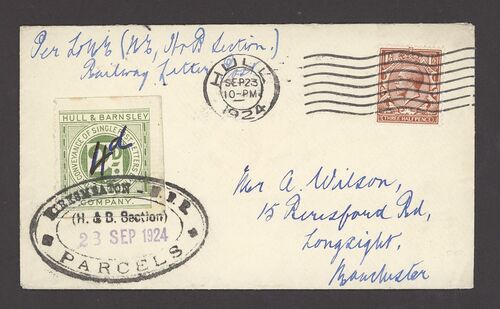 Per L&NE (NE, H&B Section.)
Railway Letter
HULL
SEP 23
10-PM
1924
THREE HALFPENCE
HULL & BARNSLEY
CONVEYANCE OF SINGLE POST LETTERS
4d
COMPANY.
(H. & B. Section)
23 SEP 1924
PARCELS
Mr A. Wilson,
15 Beresford Rd,
Longsight,
Manchester